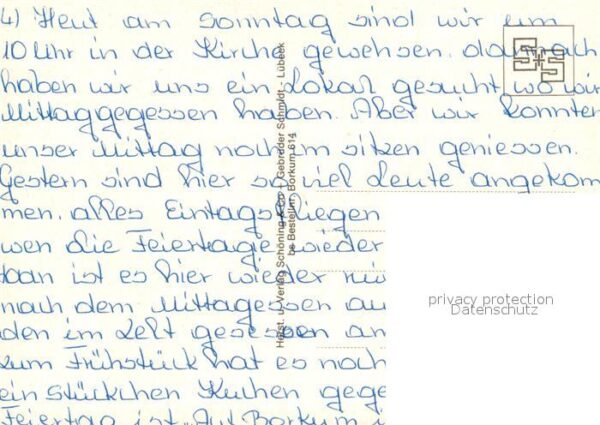 4) Heut am Sonntag sind wir um
10 Uhr in der Kirche gewehsen. dannach
haben wir uns ein Lokal gesucht wo wir
Mittaggegessen haben. Aber wir konnten
unser Mittag noch im sitzen geniessen.
Gestern sind hier so viel Leute angekom
men. alles Eintagsfliegen
wen die Feiertage wieder
dan ist es hier wieder
nach dem Mittagessen
den im Zelt gesessen an
zum Frühstück hat es noch
ein stückchen Kuchen gege
Feiertag ist. Auf Borkum i
Herst. u. Verlag Schöning & Co + Gebrüder Schmidt - Lübeck
bei Bestellung: Borkum 614
S+S
privacy protection
Datenschutz